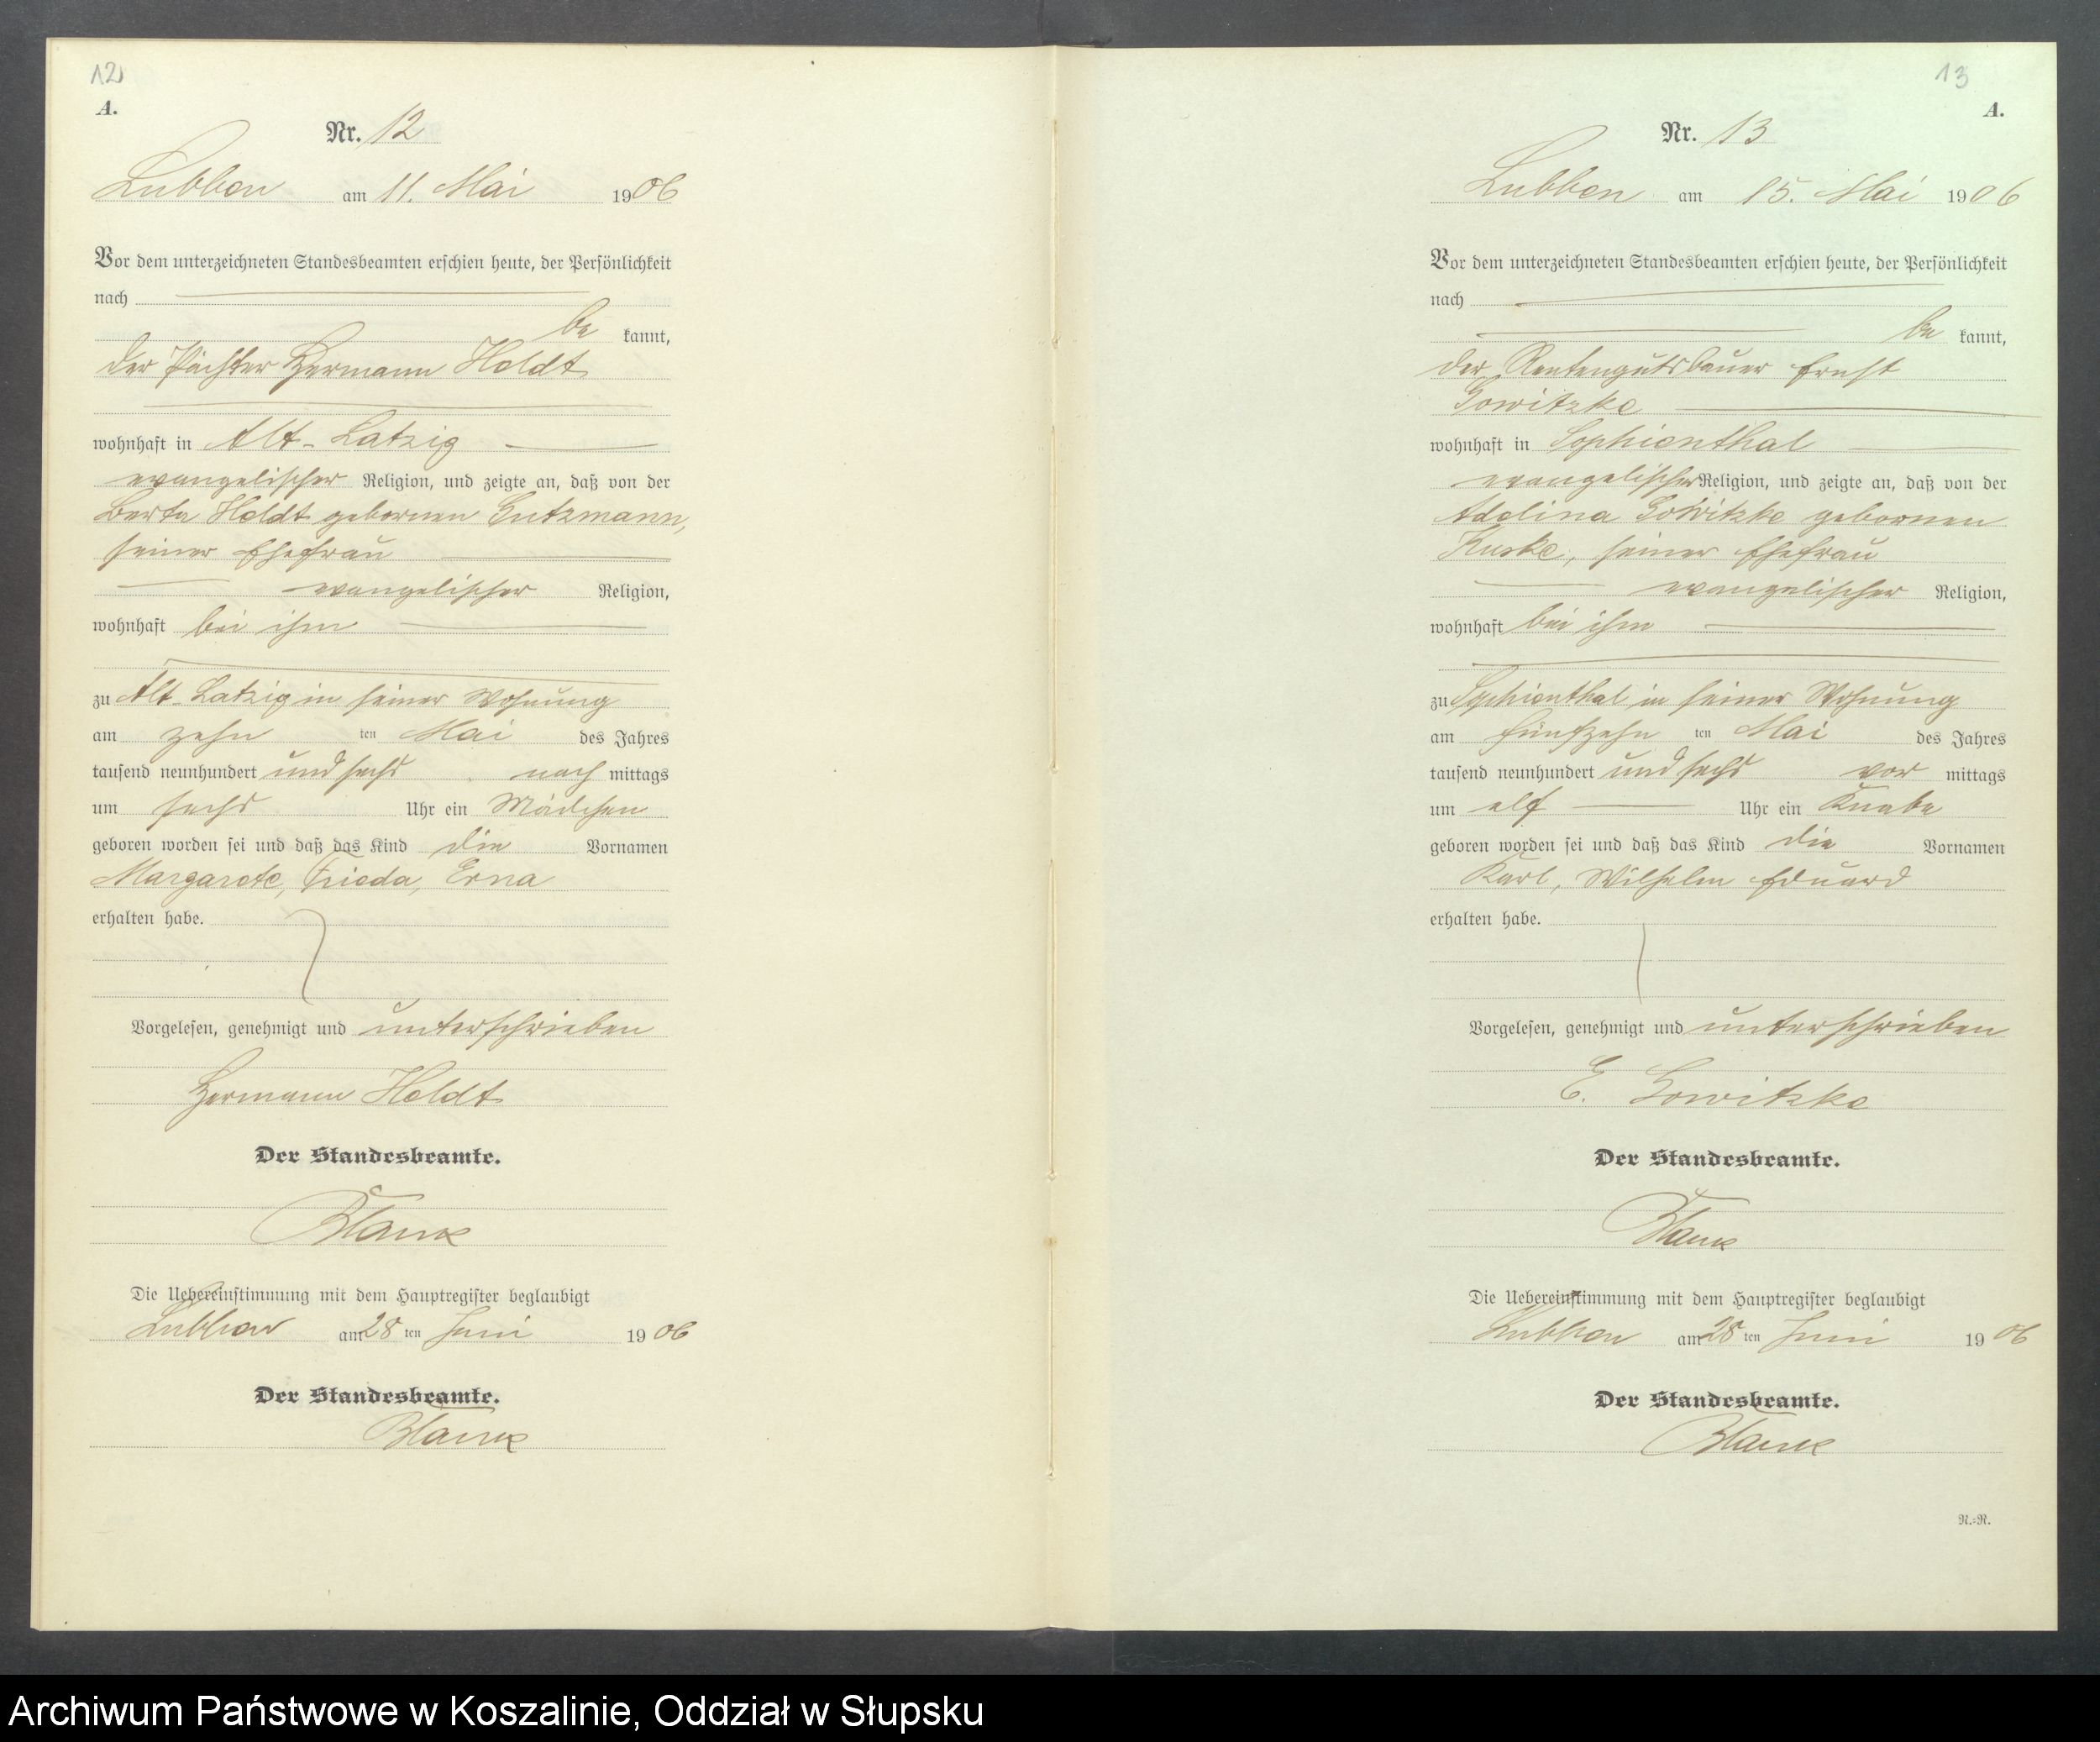 12
A.
Nr. 12
Lubben am 11. Mai 1906
Vor dem unterzeichneten Standesbeamten erschien heute, der Persönlichkeit
nach
be kannt,
der Pächter Hermann Holdt
wohnhaft in Alt-Latzig
evangelischer Religion, und zeigte an, daß von der
Berta Holdt gebornen Gutzmann,
seiner Ehefrau
evangelischer Religion,
wohnhaft bei ihm
zu Alt-Latzig in seiner Wohnung
am zehn ten Mai des Jahres
tausend neunhundert und sechs nach mittags
um sechs Uhr ein Mädchen
geboren worden sei und daß das Kind die Vornamen
Margarete, Frieda, Erna
erhalten habe.
Vorgelesen, genehmigt und unterschrieben
Hermann Holdt
Der Standesbeamte.
Blank
Die Uebereinstimmung mit dem Hauptregister beglaubigt
Lubben am 28 ten Juni 1906
Der Standesbeamte.
Blank
13
A.
Nr. 13
Lubben am 15. Mai 1906
Vor dem unterzeichneten Standesbeamten erschien heute, der Persönlichkeit
nach
be kannt,
der Rentengutsbauer Ernst
Gowitzke
wohnhaft in Sophienthal
evangelischer Religion, und zeigte an, daß von der
Adelina Gowitzke gebornen
Kuske, seiner Ehefrau
evangelischer Religion,
wohnhaft bei ihm
zu Sophienthal in seiner Wohnung
am fünfzehn ten Mai des Jahres
tausend neunhundert und sechs vor mittags
um elf Uhr ein Knabe
geboren worden sei und daß das Kind die Vornamen
Karl, Wilhelm Eduard
erhalten habe.
Vorgelesen, genehmigt und unterschrieben
E. Gowitzke
Der Standesbeamte.
Blank
Die Uebereinstimmung mit dem Hauptregister beglaubigt
Lubben am 28 ten Juni 1906
Der Standesbeamte.
Blank
R.=R.
Archiwum Państwowe w Koszalinie, Oddział w Słupsku